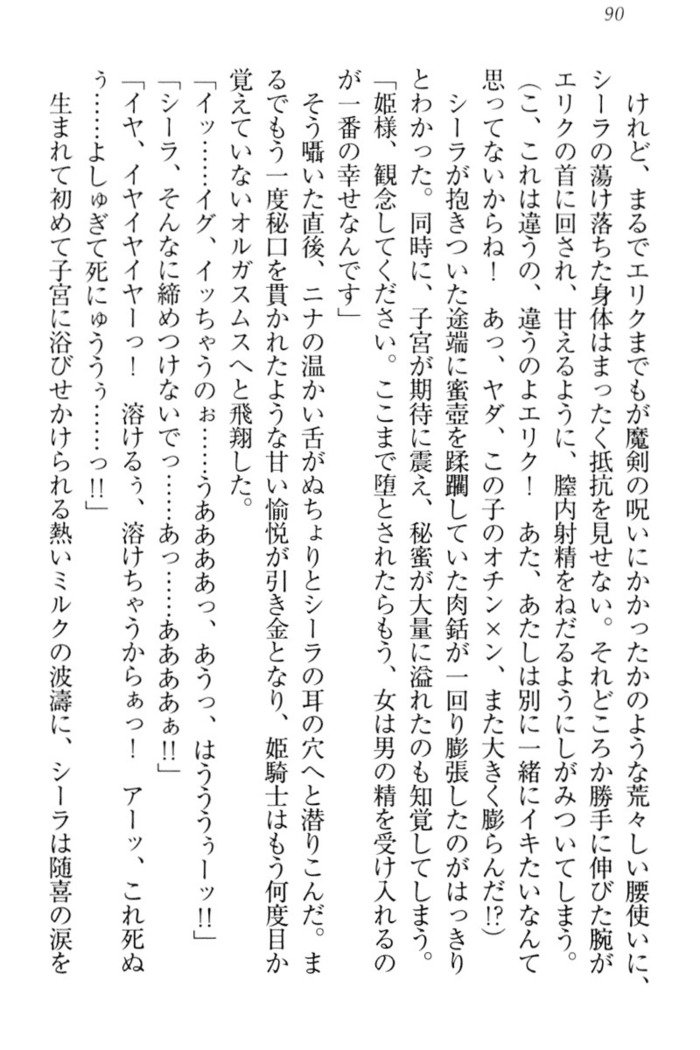 90
けれど、まるでエリクまでもが魔剣の呪いにかかったかのような荒々しい腰使いに、
シーラの蕩け落ちた身体はまったく抵抗を見せない。それどころか勝手に伸びた腕が
エリクの首に回され、甘えるように、膣内射精をねだるようにしがみついてしまう。
(こ、これは違うの、違うのよエリク！　あた、あたしは別に一緒にイキたいなんて
思ってないからね！　あっ、ヤダ、この子のオチン×ン、また大きく膨らんだ!?)
シーラが抱きついた途端に蜜壺を蹂躙していた肉銛が一回り膨張したのがはっきり
とわかった。同時に、子宮が期待に震え、秘蜜が大量に溢れたのも知覚してしまう。
「姫様、観念してください。ここまで堕とされたらもう、女は男の精を受け入れるの
が一番の幸せなんです」
そう囁いた直後、ニナの温かい舌がぬちょりとシーラの耳の穴へと潜りこんだ。ま
るでもう一度秘口を貫かれたような甘い愉悦が引き金となり、姫騎士はもう何度目か
覚えていないオルガスムスへと飛翔した。
「イッ……イグ、イッちゃうのぉ……うああああっ、あうっ、はうううぅーッ!!」
「シーラ、そんなに締めつけないでっ……あっ……ああああぁ!!」
「イヤ、イヤイヤイヤーっ！　溶けるぅ、溶けちゃうからぁっ！　アーッ、これ死ぬ
ぅ……よしゅぎて死にゅううぅ……っ!!」
生まれて初めて子宮に浴びせかけられる熱いミルクの波濤に、シーラは随喜の涙を